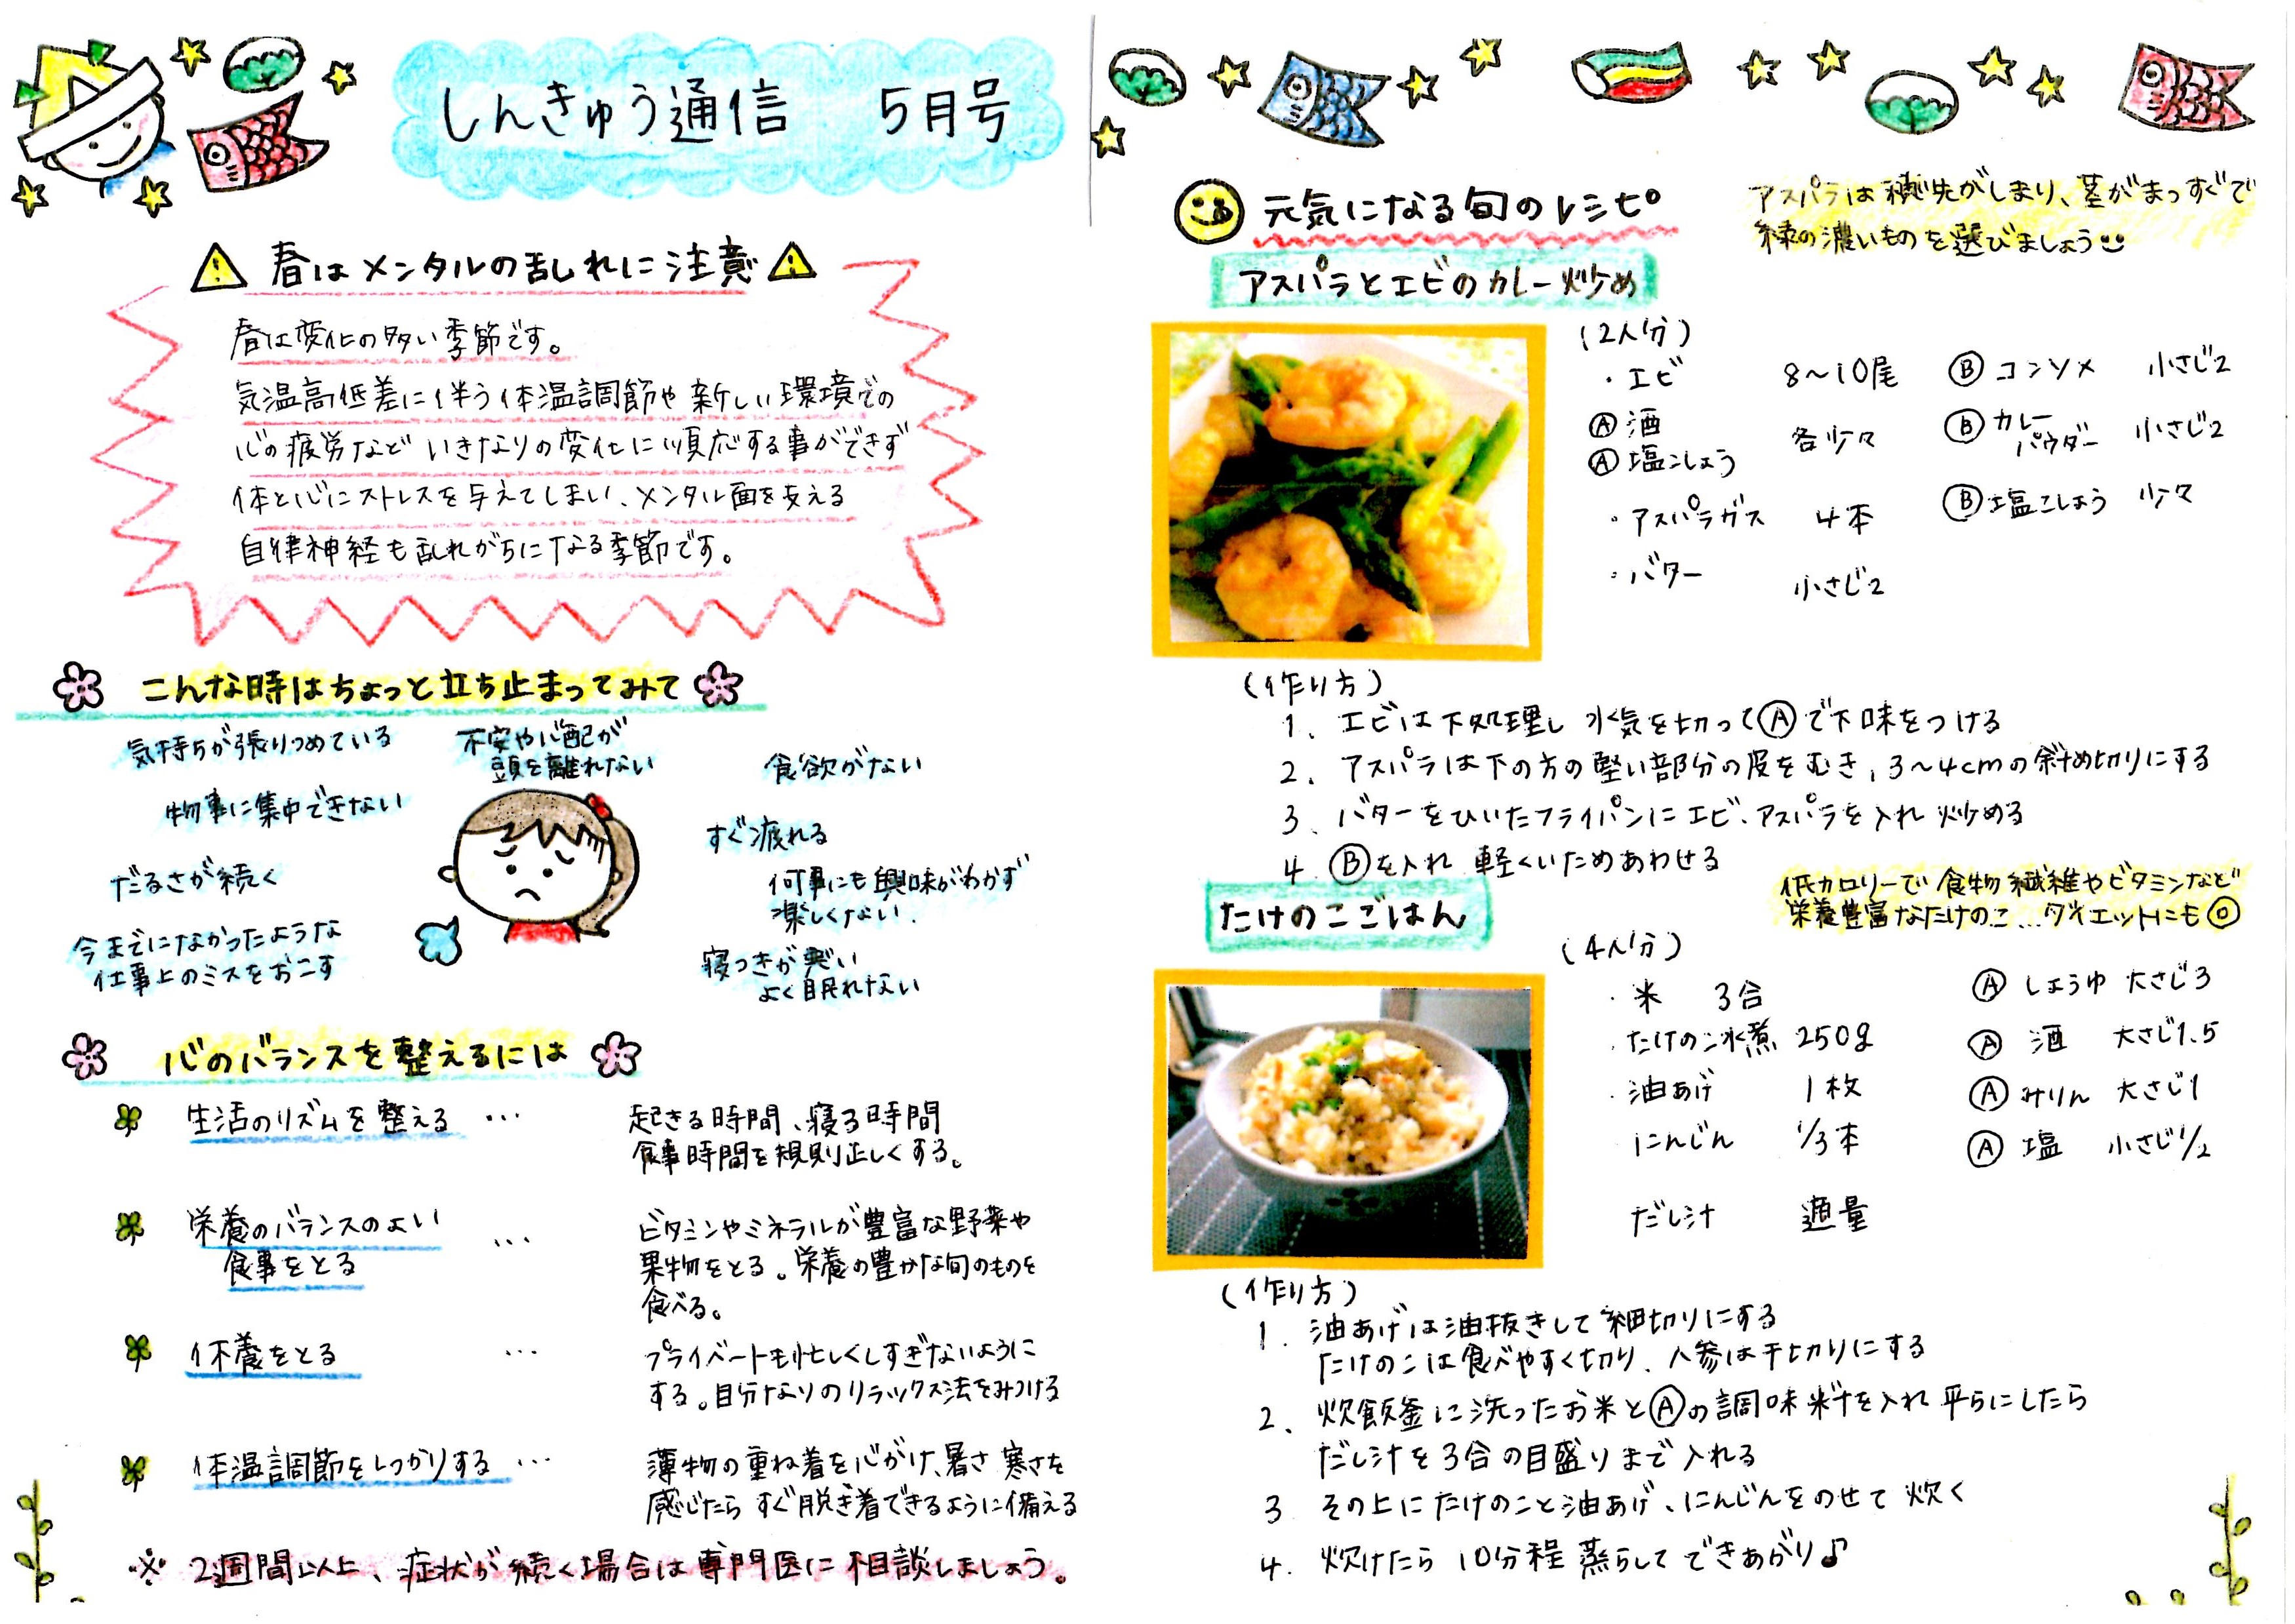 しんきゅう通信 5月号
春はメンタルの乱れに注意
春は変化の多い季節です。
気温高低差に伴う体温調節や新しい環境での
心の疲労など いきなりの変化に順応する事ができず
体と心にストレスを与えてしまい、メンタル面を支える
自律神経も乱れがちになる季節です。
こんな時はちょっと立ち止まってみて
気持ちが張りつめている
不安や心配が
頭を離れない
食欲がない
物事に集中できない
すぐ疲れる
だるさが続く
何事にも興味がわかず
楽しくない.
今までになかったような
仕事上のミスをおこす
寝つきが悪い
よく眠れない
心のバランスを整えるには
生活のリズムを整える …
起きる時間、寝る時間
食事時間を規則正しくする。
栄養のバランスのよい
食事をとる
…
ビタミンやミネラルが豊富な野菜や
果物をとる。栄養の豊かな旬のものを
食べる。
休養をとる …
プライベートも忙しくしすぎないように
する。自分なりのリラックス法をみつける
体温調節をしっかりする …
薄物の重ね着を心がけ、暑さ 寒さを
感じたら すぐ脱ぎ着できるように備える
※ 2週間以上、症状が続く場合は専門医に相談しましょう。
元気になる旬のレシピ
アスパラは穂先がしまり、茎がまっすぐで
緑の濃いものを選びましょう
アスパラとエビのカレー炒め
(2人分)
・エビ 8〜10尾
Ⓐ酒
Ⓐ塩こしょう
各少々
・アスパラガス 4本
・バター 小さじ2
Ⓑ コンソメ 小さじ2
Ⓑ カレー
パウダー 小さじ2
Ⓑ 塩こしょう 少々
(作り方)
1. エビは下処理し 水気を切ってⒶで下味をつける
2. アスパラは下の方の堅い部分の皮をむき、3〜4cmの斜め切りにする
3、バターをひいたフライパンにエビ、アスパラを入れ 炒める
4. Ⓑを入れ 軽くいためあわせる
たけのこごはん
低カロリーで食物繊維やビタミンなど
栄養豊富なたけのこ…ダイエットにも◎
(4人分)
・米 3合
・たけのこ水煮 250g
・油あげ 1枚
にんじん 1/3本
だし汁 適量
Ⓐ しょうゆ 大さじ3
Ⓐ 酒 大さじ1.5
Ⓐ みりん 大さじ1
Ⓐ 塩 小さじ1/2
(作り方)
1. 油あげは油抜きして細切りにする
たけのこは食べやすく切り、人参は千切りにする
2、炊飯釜に洗ったお米とⒶの調味料を入れ 平らにしたら
だし汁を3合の目盛りまで入れる
3 その上にたけのこと油あげ、にんじんをのせて 炊く
4. 炊けたら 10分程 蒸らして できあがり♪